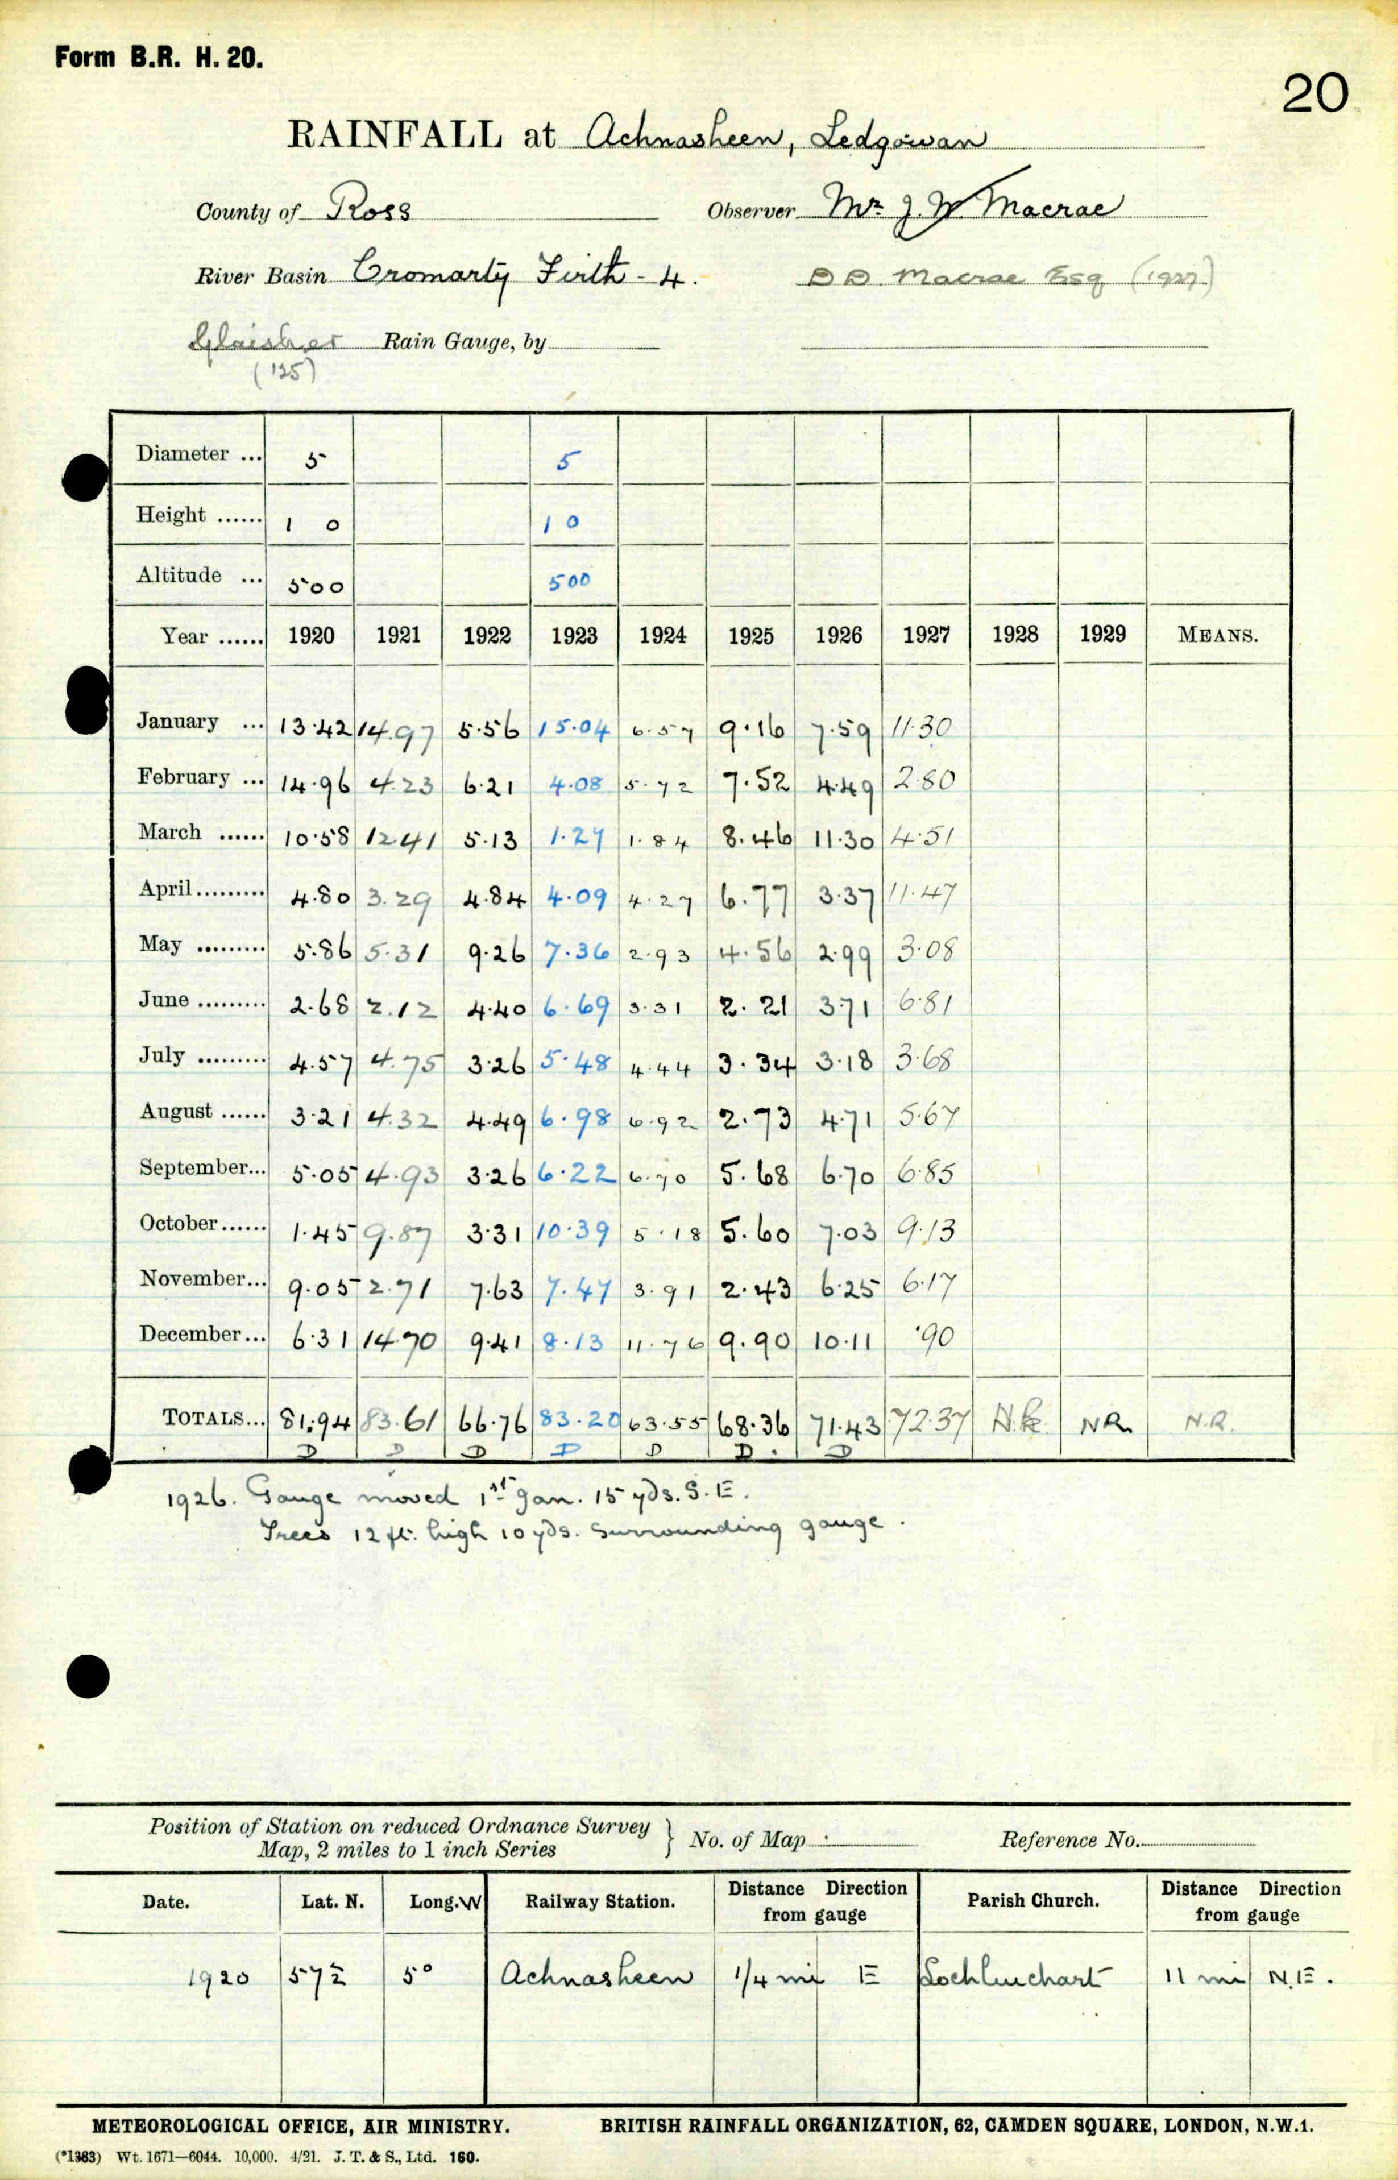 Form B.R. H. 20.
20
RAINFALL at Achnasheen, Ledgowan
County of Ross Observer Mr J. W. Macrae
River Basin Cromarty Firth - 4. D D Macrae Esq (1927)
Glaisher Rain Gauge, by
(125)
Diameter ... 5 5
Height ...... 1 0 1 0
Altitude ... 500 500
Year ...... 1920 1921 1922 1923 1924 1925 1926 1927 1928 1929 MEANS.
January ... 13.42 14.97 5.56 15.04 6.57 9.16 7.59 11.30
February ... 14.96 4.23 6.21 4.08 5.72 7.52 4.49 2.80
March ...... 10.58 12.41 5.13 1.27 1.84 8.46 11.30 4.51
April......... 4.80 3.29 4.84 4.09 4.27 6.77 3.37 11.47
May ......... 5.86 5.31 9.26 7.36 2.93 4.56 2.99 3.08
June ......... 2.68 2.12 4.40 6.69 3.31 2.21 3.71 6.81
July ......... 4.57 4.75 3.26 5.48 4.44 3.34 3.18 3.68
August ...... 3.21 4.32 4.49 6.98 6.92 2.73 4.71 5.67
September... 5.05 4.93 3.26 6.22 6.70 5.68 6.70 6.85
October...... 1.45 9.87 3.31 10.39 5.18 5.60 7.03 9.13
November... 9.05 2.71 7.63 7.47 3.91 2.43 6.25 6.17
December... 6.31 14.70 9.41 8.13 11.76 9.90 10.11 .90
TOTALS... 81.94 83.61 66.76 83.20 63.55 68.36 71.43 72.37 N.R. NR. N.R.
D D D D D D. D
1926. Gauge moved 1st Jan. 15 yds. S.E.
Trees 12 ft. high 10 yds. surrounding gauge.
Position of Station on reduced Ordnance Survey
Map, 2 miles to 1 inch Series } No. of Map Reference No.
Date. Lat. N. Long. W Railway Station. Distance Direction from gauge Parish Church. Distance Direction from gauge
1920 57½ 5° Achnasheen 1/4 mi E Lochluichart 11 mi N.E.
METEOROLOGICAL OFFICE, AIR MINISTRY. BRITISH RAINFALL ORGANIZATION, 62, CAMDEN SQUARE, LONDON, N.W.1.
(*1383) Wt. 1671—6044. 10,000. 4/21. J. T. & S., Ltd. 160.